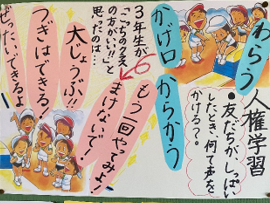 人権学習
・友だちが、しっぱい
したとき、何て声を
かける?。
わらう
からかう
かげ口
3年生が
「こっちのクラス
の方がいい!」と
思ったのは…
もう一回やってみよ!
まけないで!
大じょうぶ!!
つぎはできる!
ぜったい、できるよ